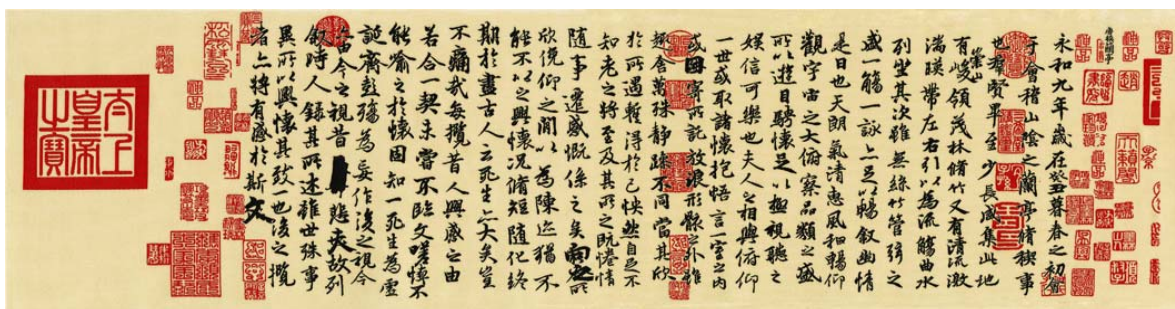 永和九年歲在癸丑暮春之初會
于會稽山陰之蘭亭脩稧事
也群賢畢至少長咸集此地
有崇山峻領茂林脩竹又有清流激
湍暎帶左右引以為流觴曲水
列坐其次雖無絲竹管弦之
盛一觴一詠亦足以暢敘幽情
是日也天朗氣清惠風和暢仰
觀宇宙之大俯察品類之盛
所以遊目騁懷足以極視聽之
娛信可樂也夫人之相與俯仰
一世或取諸懷抱悟言一室之內
或因寄所託放浪形骸之外雖
趣舍萬殊靜躁不同當其欣
於所遇蹔得於己怏然自足不
知老之將至及其所之既惓情
隨事遷感慨係之矣向之所
欣俛仰之閒以為陳迹猶不
能不以之興懷況脩短隨化終
期於盡古人云死生亦大矣豈
不痛哉每攬昔人興感之由
若合一契未嘗不臨文嗟悼不
能喻之於懷固知一死生為虛
誕齊彭殤為妄作後之視今
亦由今之視昔悲夫故列
敘時人錄其所述雖世殊事
異所以興懷其致一也後之攬
者亦將有感於斯文
太上皇帝之寶